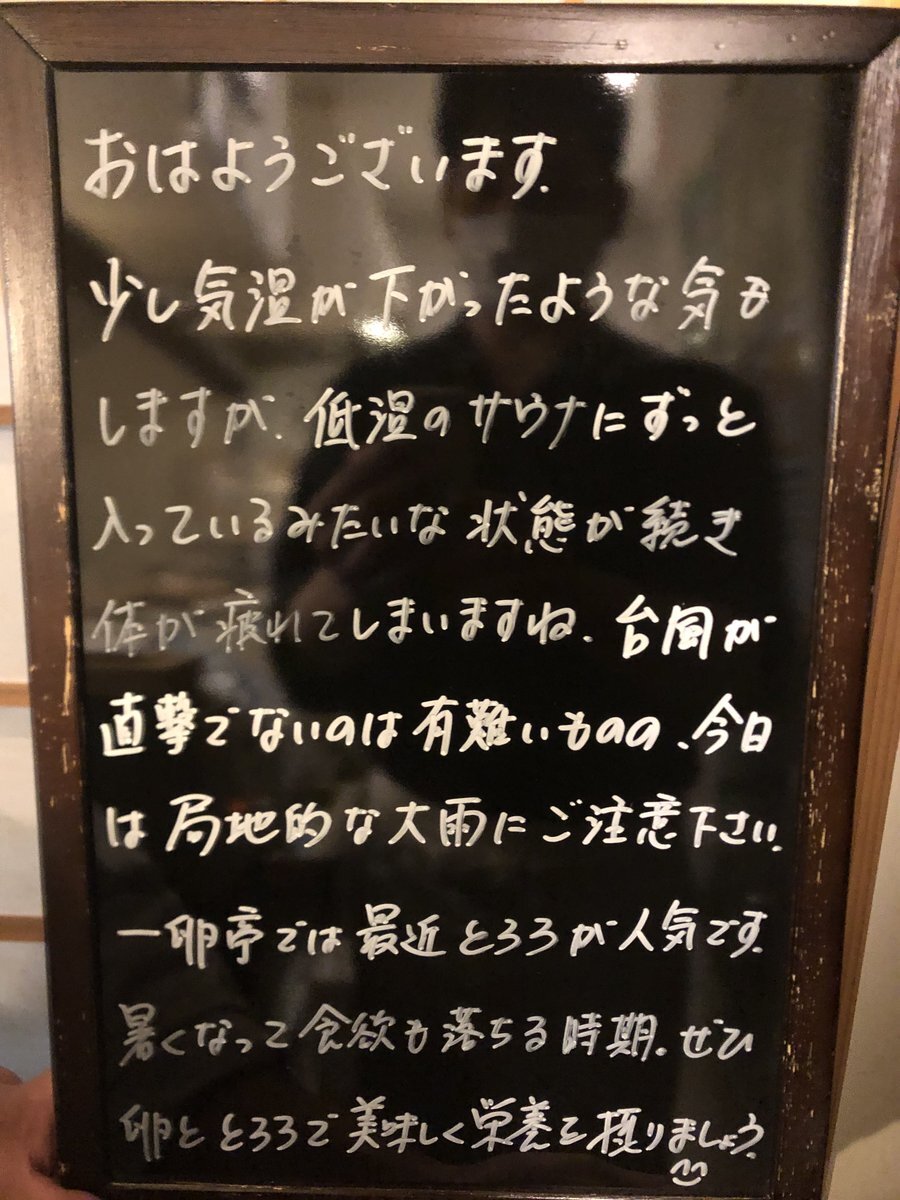 おはようございます.
少し気温が下がったような気も
しますが、低温のサウナにずっと
入っているみたいな状態が続き
体が疲れてしまいますね、台風が
直撃でないのは有難いものの、今日
は局地的な大雨にご注意下さい.
一卵亭では最近とろろが人気です.
暑くなって食欲も落ちる時期。ぜひ
卵ととろろで美味しく栄養を摂りましょう.